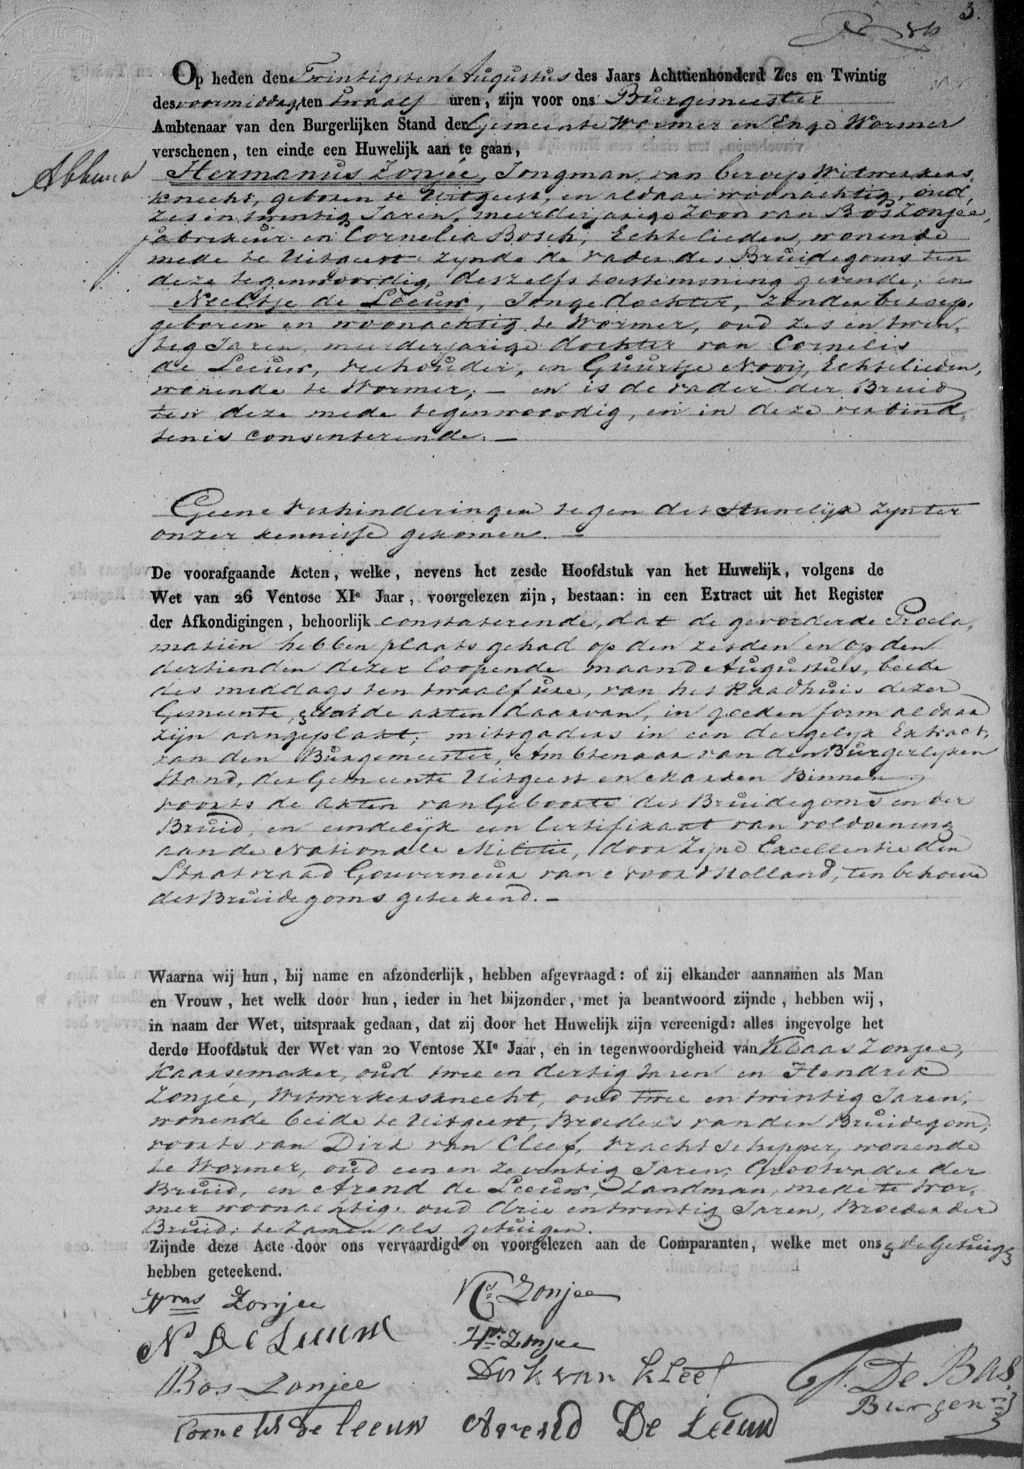 3.
Op heden den Twintigsten Augustus des Jaars Achttienhonderd Zes en Twintig
des voormiddags ten twaalf uren, zijn voor ons Burgemeester
Ambtenaar van den Burgerlijken Stand der Gemeente Wormer en Enge Wormer
verschenen, ten einde een Huwelijk aan te gaan,
Hermanus Zonjeé, Jongman, van beroep Witwerkers,
knecht, geboren te Uitgeest, en aldaar woonachtig, oud,
zes en twintig Jaren, meerderjarige Zoon van Bos Zonjee,
fabrikeur en Cornelia Bosch, Echtelieden, wonende
mede te Uitgeest zynde de vader des Bruidegoms ten
deze tegenwoordig, deszelfs toestemming gevende; en
Neeltje de Leeuw, Jonge dochter, zonder beroep,
geboren en woonachtig te Wormer, oud zes en twin,
tig Jaren, meerderjarige dochter van Cornelis
de Leeuw, veehouder, en Guurtje Nooij, Echtelieden,
wonende te Wormer; — en is de vader der Bruid
ten deze mede tegenwoordig, en in deze verbind,
tenis consenterende. —
Geene verhinderingen tegen dit Huwelijk zyn ter
onzer kennisse gekomen. —
De voorafgaande Acten, welke, nevens het zesde Hoofdstuk van het Huwelijk, volgens de
Wet van 26 Ventose XIe Jaar, voorgelezen zijn, bestaan: in een Extract uit het Register
der Afkondigingen, behoorlijk constaterende, dat de gevorderde Procla,
matiën hebben plaats gehad op den zesden en op den
dertienden dezer loopende maand Augustus, beide
des middags ten twaalf ure, van het Raadhuis dezer
Gemeente, dat de akten daarvan, in goeden form aldaar
zijn aangeplakt; mitsgaders in een dergelijk Extract,
van den Burgemeester, Ambtenaar van den Burgerlijken
Stand, der Gemeente Uitgeest en Marken Binnen
voorts de akten van Geboorte des Bruidegoms en der
Bruid, en eindelijk een Certifikaat van voldoening
aan de Nationale Militie, door Zijne Excellentie den
Staatsraad Gouverneur van Noord Holland, ten behoeve
des Bruidegoms geteekend. —
Waarna wij hun, bij name en afzonderlijk, hebben afgevraagd: of zij elkander aannamen als Man
en Vrouw, het welk door hun, ieder in het bijzonder, met ja beantwoord zijnde, hebben wij,
in naam der Wet, uitspraak gedaan, dat zij door het Huwelijk zijn vereenigd: alles ingevolge het
derde Hoofdstuk der Wet van 20 Ventose XIe Jaar, en in tegenwoordigheid van Klaas Zonjee,
Kaarsemaker, oud twee en dertig Jaren en Hendrik
Zonjeé, Witwerkersknecht, oud twee en twintig Jaren,
wonende beide te Uitgeest, Broeders van den Bruidegom;
voorts van Dirk van Cleef, Vrachtschipper, wonende
te Wormer, oud een en zeventig Jaren, Grootvader der
Bruid, en Arend de Leeuw, Landman, mede te Wor,
mer woonachtig, oud drie en twintig Jaren, Broeder der
Bruid; te zamen als getuigen.
Zijnde deze Acte door ons vervaardigd en voorgelezen aan de Comparanten, welke met ons & de Getuigen
hebben geteekend.
Hmas Zonjee
Ks Zonjee
N De Leeuw
Hk Zonjee
Bos Zonjee
Dirk van Kleef
Cornelis de leeuw
Arend De Leeuw
De Bas
Burgemr